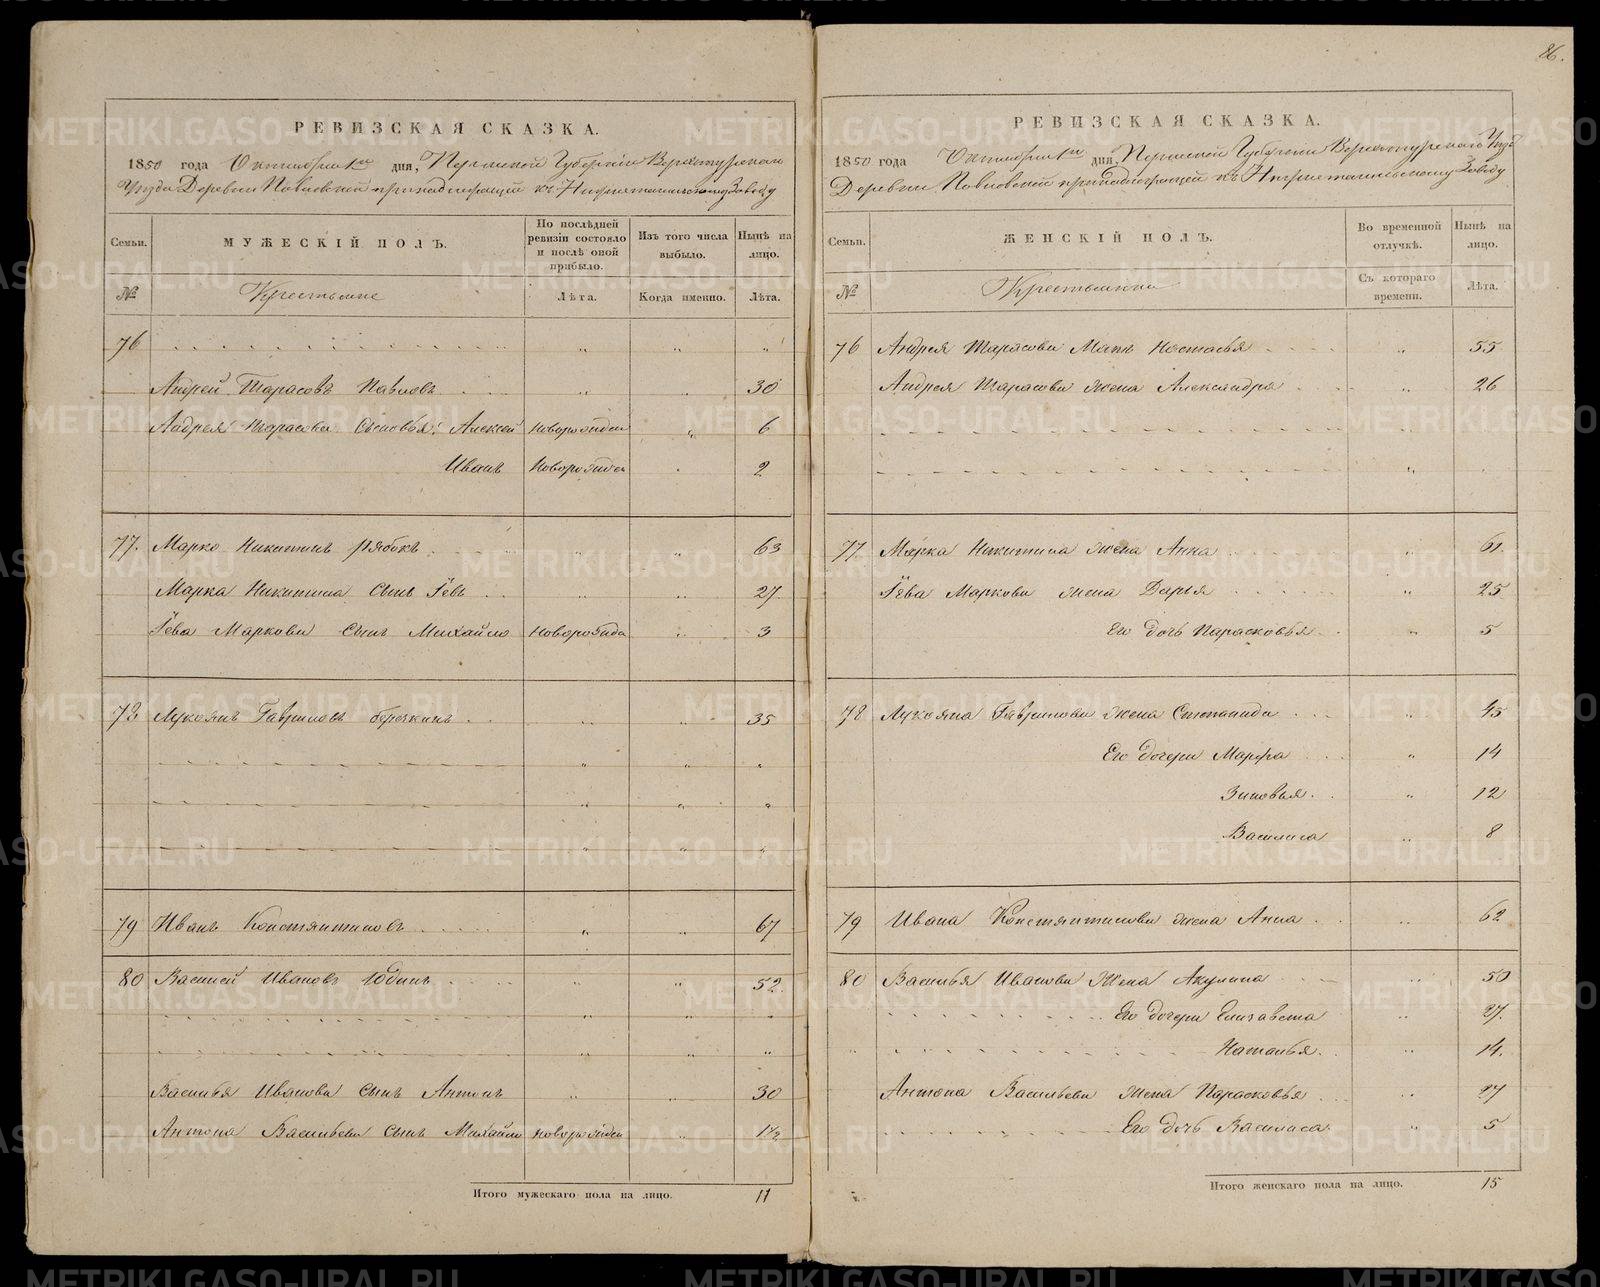 86.
РЕВИЗСКАЯ СКАЗКА.
1850 года Октября 1го дня, Пермской Губерніи Верхотурскаго
Уезда Деревни Павловской принадлежащей къ Нижнетагильскому Заводу
Семьи. МУЖЕСКІЙ ПОЛЪ. По послѣдней ревизіи состояло и послѣ оной прибыло. Изъ того числа выбыло. Нынѣ на лицо.
№ Крестьяне Лѣта. Когда именно. Лѣта.
76 " " "
Андрей Тарасовъ Павловъ " " 30
Андрея Тарасова Сыновья: Алексей Новорожден " 6
Иванъ Новорожден " 2
77. Марко Никитинъ Рябокъ " " 63
Марка Никитина сынъ Іевъ " " 27
Іева Маркова сынъ Михайло новорожден " 3
78 Лукоянъ Гавриловъ " " 35
" " "
" " "
" " "
79 Иванъ Констянтиновъ " " 67
80 Василей Ивановъ Юдинъ " " 52
" " "
" " "
Василья Иванова сынъ Антонъ " " 30
Антона Васильева сынъ Михайло новорожден " 1½
Итого мужескаго пола на лицо. 11
РЕВИЗСКАЯ СКАЗКА.
1850 года Октября 1го дня, Пермской Губерніи Верхотурскаго Уезд
Деревни Павловской принадлежащей къ Нижнетагильскому Заводу
Семьи. ЖЕНСКІЙ ПОЛЪ. Во временной отлучкѣ. Нынѣ на лицо.
№ Крестьянки Съ котораго времени. Лѣта.
76 Андрея Тарасова Мать Настасья " 55
Андрея Тарасова жена Александра " 26
"
"
77 Марка Никитина жена Анна " 61.
Іева Маркова жена Дарья " 25
Его дочь Парасковья " 5
78 Лукояна Гаврилова жена Степанида " 45
Его дочери Марфа " 14
Зиновья. " 12
Василиса " 8
79 Ивана Констянтинова жена Анна " 62
80 Василья Иванова Жена Акулина " 50
Его дочери Елизавета " 27.
Наталья. " 14.
Антона Васильева жена Парасковья " 27
Его дочь Василиса " 5
Итого женскаго пола на лицо. 15
METRIKI.GASO-URAL.RU